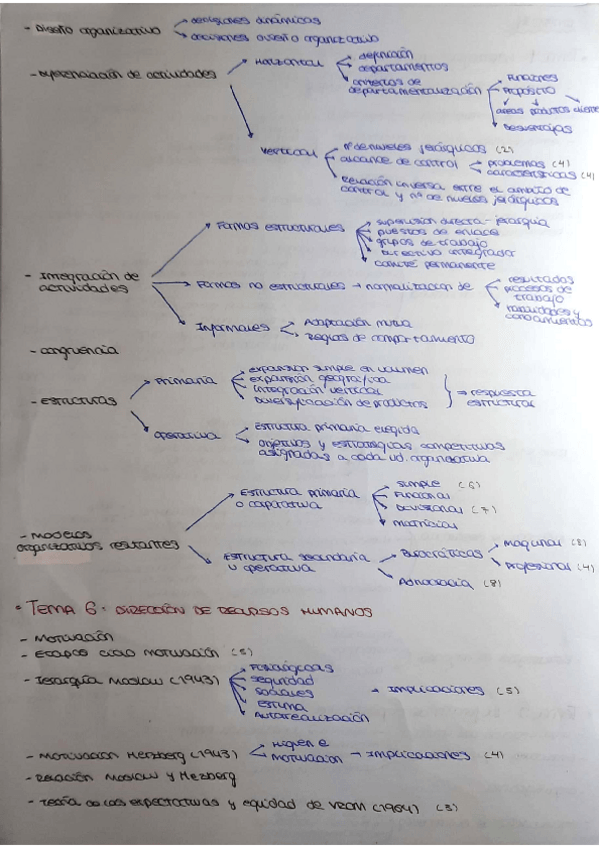 - Diseño organizativo → decisiones dinámicas
→ decisiones diseño organizativo
- Diferenciación de actividades → Horizontal → definición
→ departamentos
→ criterios de departamentalización → Funciones
→ Propósito
→ áreas productos cliente
→ Desventajas
→ Vertical → nº de niveles jerárquicos (2)
→ alcance de control → problemas (4)
→ características (4)
→ Relación inversa entre el ámbito de
control y nº de niveles jerárquicos
- Integración de actividades → Formas estructurales → supervisión directa - jerarquía
→ puestos de enlace
→ grupos de trabajo
→ Directivo integrador
→ comité permanente
→ Formas no estructurales → normalización de → resultados
→ procesos de trabajo
→ habilidades y conocimientos
→ Informales → Adaptación mutua
→ Reglas de comportamiento
- congruencia
- estructuras → Primaria → expansión simple en volumen
→ expansión geográfica
→ Integración vertical
→ Diversificación de productos
} ⇒ respuesta estructural
→ operativa → Estructura primaria elegida
→ objetivos y estrategias competitivas
asignadas a cada ud. organizativa
- Modelos organizativos resultantes → Estructura primaria o corporativa → simple (6)
→ Funcional
→ Divisional (7)
→ Matricial
→ Estructura secundaria u operativa → Burocráticas → Maquinal (8)
→ Profesional (4)
→ Adhocracia (8)
• TEMA 6: DIRECCIÓN DE RECURSOS HUMANOS
- Motivación
- Etapas ciclo motivación (5)
- Jerarquía Maslow (1943) → Fisiológicas
→ Seguridad
→ Sociales → Implicaciones (5)
→ Estima
→ Autorrealización
- Motivación Herzberg (1943) → Higiene
→ motivación → Implicaciones (4)
- Relación Maslow y Herzberg
- Teoría de las expectativas y equidad de Vroom (1964) (3)